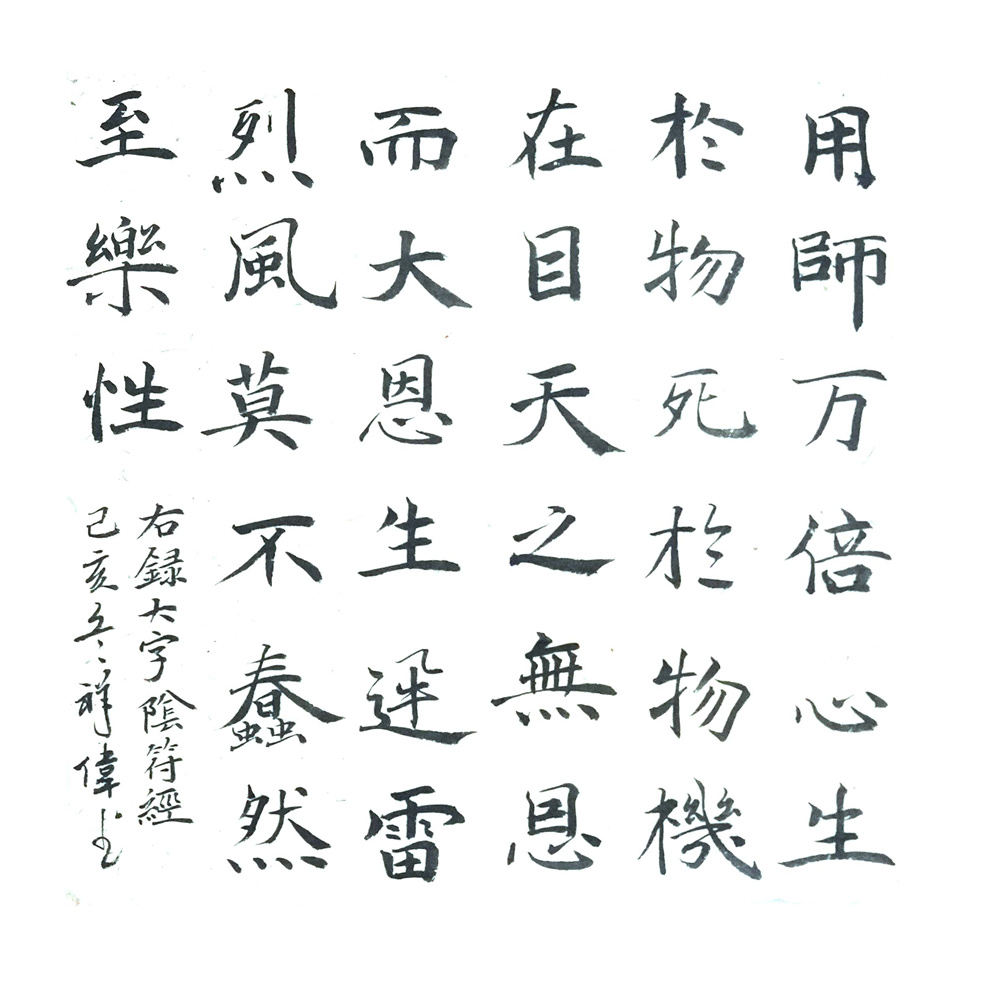 用師万倍心生
於物死於物機
在目天之無恩
而大恩生迅雷
烈風莫不蠢然
至樂性
右録大字陰符經
己亥冬祥偉书